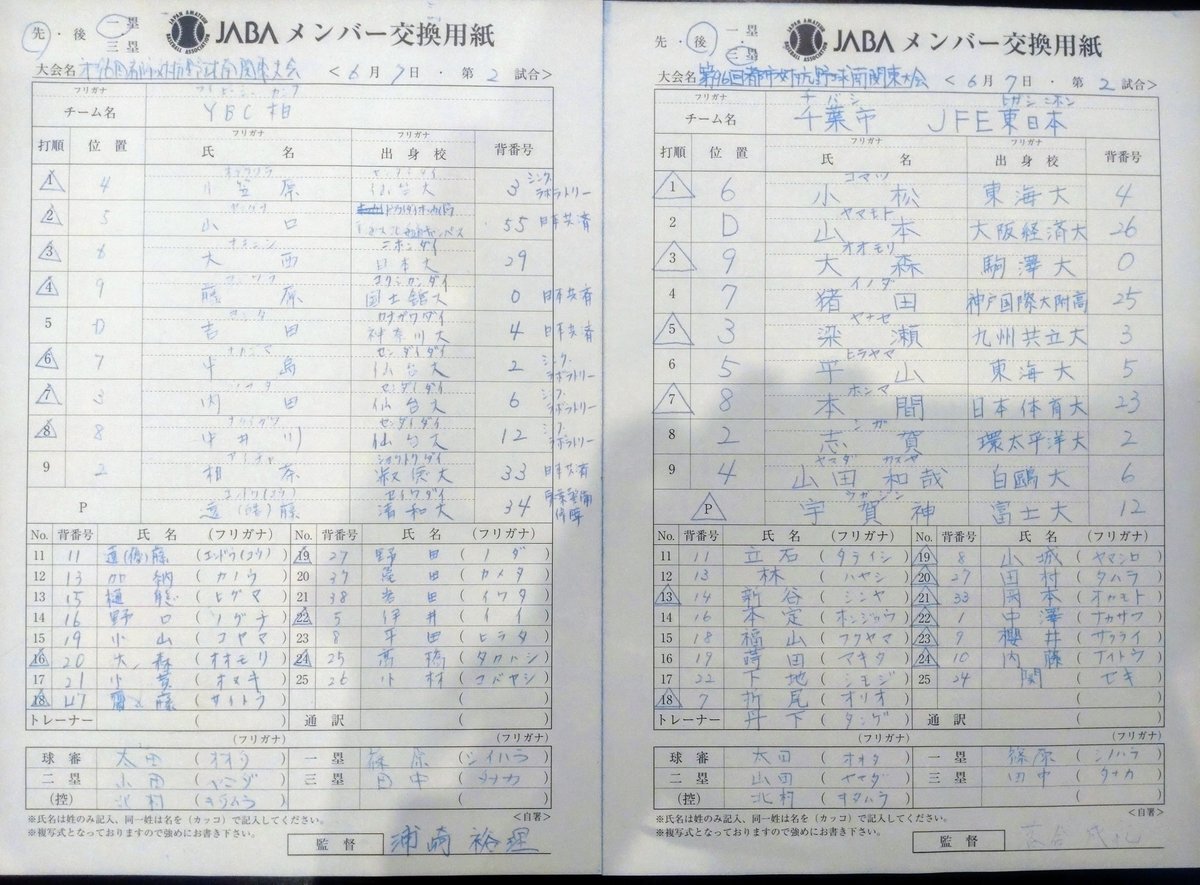 先・後 一塁 三塁 JABA メンバー交換用紙
大会名 <6月7日・第2試合>
フリガナ
チーム名 YBC柏
打順 位置 フリガナ 氏名 フリガナ 出身校 背番号
1 4 小笠原 仙台大 3 シンクラボラトリー
2 5 山口 55 日本共済
3 6 大西 ニホンダイ 日本大 29
4 9 藤原 コクシカンダイ 国士舘大 0 日本共済
5 D 吉田 カナガワダイ 神奈川大 4 日本共済
6 7 ナカジマ 中島 センダイダイ 仙台大 2 シンクラボラトリー
7 3 内田 センダイダイ 仙台大 6 シンクラボラトリー
8 8 中井川 センダイダイ 仙台大 12 シンクラボラトリー
9 2 相原 淑徳大 33 日本共済
P 遠藤 セイワダイ 清和大 34
No. 背番号 氏名 (フリガナ) No. 背番号 氏名 (フリガナ)
11 11 遠藤 19 27 野田 (ノダ)
12 13 加納 (カノウ) 20 37 亀田 (カメタ)
13 15 樋熊 (ヒグマ) 21 38 岩田 (イワタ)
14 16 野口 (ノグチ) 22 5 伊井 (イイ)
15 19 小山 (コヤマ) 23 8 平田 (ヒラタ)
16 20 大森 (オオモリ) 24 25 高橋 (タカハシ)
17 21 小貫 (オヌキ) 25 26 小林 (コバヤシ)
18 47 齋藤 (サイトウ)
トレーナー ( ) 通訳 ( )
(フリガナ) (フリガナ)
球審 太田 (オオタ) 一塁 篠原 (シノハラ)
二塁 山田 (ヤマダ) 三塁 田中 (タナカ)
(控) 北村 (キタムラ) ( )
※氏名は姓のみ記入、同一姓は名を(カッコ)で記入してください。 <自署>
※複写式となっておりますので強めにお書き下さい。
監督 浦崎 裕理
先・後 一塁 三塁 JABA メンバー交換用紙
大会名 第96回都市対抗野球南関東大会 <6月7日・第2試合>
フリガナ チバシ ヒガシニホン
チーム名 千葉市 JFE東日本
打順 位置 フリガナ 氏名 フリガナ 出身校 背番号
1 6 コマツ 小松 東海大 4
2 D ヤマモト 山本 大阪経済大 26
3 9 オオモリ 大森 駒澤大 0
4 7 イノダ 猪田 神戸国際大附高 25
5 3 ヤナセ 梁瀬 九州共立大 3
6 5 ヒラヤマ 平山 東海大 5
7 8 ホンマ 本間 日本体育大 23
8 2 シガ 志賀 環太平洋大 2
9 4 ヤマダ カズヤ 山田和哉 白鷗大 6
P ウガジン 宇賀神 富士大 12
No. 背番号 氏名 (フリガナ) No. 背番号 氏名 (フリガナ)
11 11 立石 (タテイシ) 19 8 山城 (ヤマシロ)
12 13 林 (ハヤシ) 20 27 田村 (タムラ)
13 14 新谷 (シンヤ) 21 33 岡本 (オカモト)
14 16 本定 (ホンジョウ) 22 1 中澤 (ナカザワ)
15 18 福山 (フクヤマ) 23 9 櫻井 (サクライ)
16 19 蒔田 (マキタ) 24 10 内藤 (ナイトウ)
17 22 下地 (シモジ) 25 24 関 (セキ)
18 7 折尾 (オリオ)
トレーナー 丹下 (タンゲ) 通訳 ( )
(フリガナ) (フリガナ)
球審 太田 (オオタ) 一塁 篠原 (シノハラ)
二塁 山田 (ヤマダ) 三塁 田中 (タナカ)
(控) 北村 (キタムラ) ( )
※氏名は姓のみ記入、同一姓は名を(カッコ)で記入してください。 <自署>
※複写式となっておりますので強めにお書き下さい。
監督